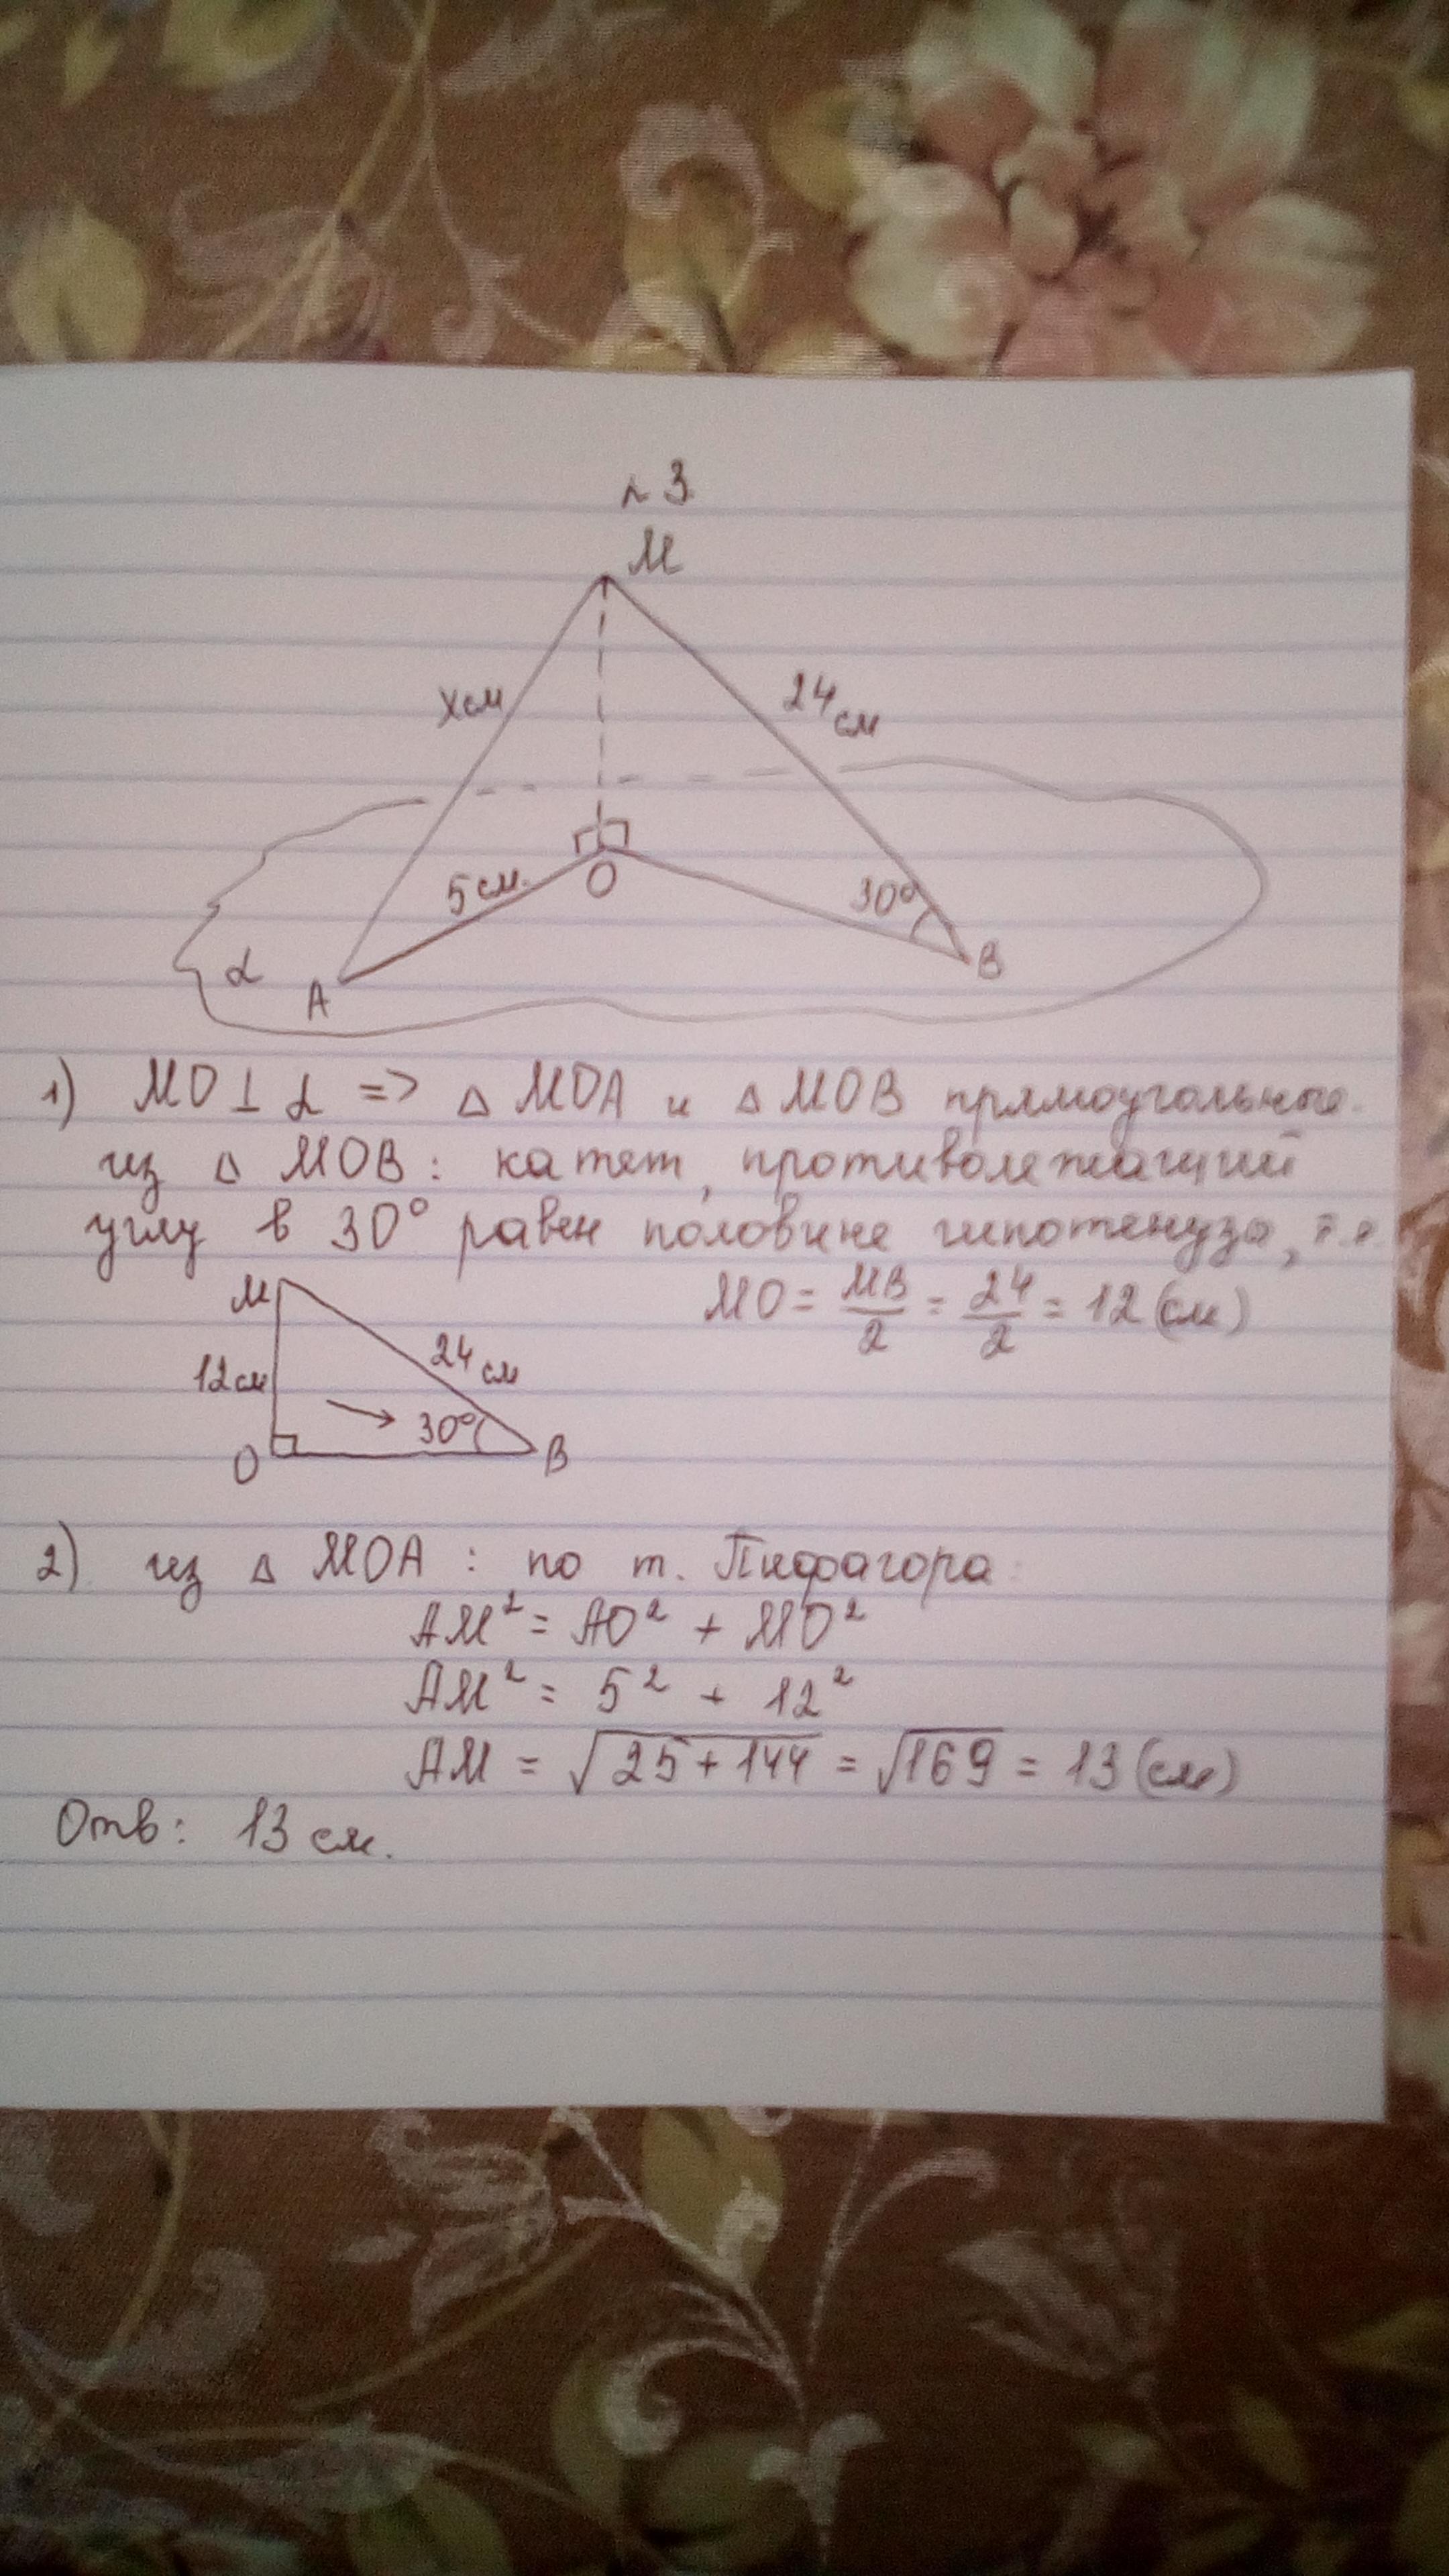 №3
M
xсм
24 см
5 см.
O
30°
α
A
B
1) MO ⊥ α => △ MOA и △ MOB прямоугольные.
из △ MOB: катет, противолежащий
углу в 30° равен половине гипотенуза, т.е.
MO = MB/2 = 24/2 = 12 (см)
M
12 см
24 см
30°
O
B
2) из △ MOA : по т. Пифагора:
AM² = AO² + MO²
AM² = 5² + 12²
AM = √25+144 = √169 = 13 (см)
Отв: 13 см.